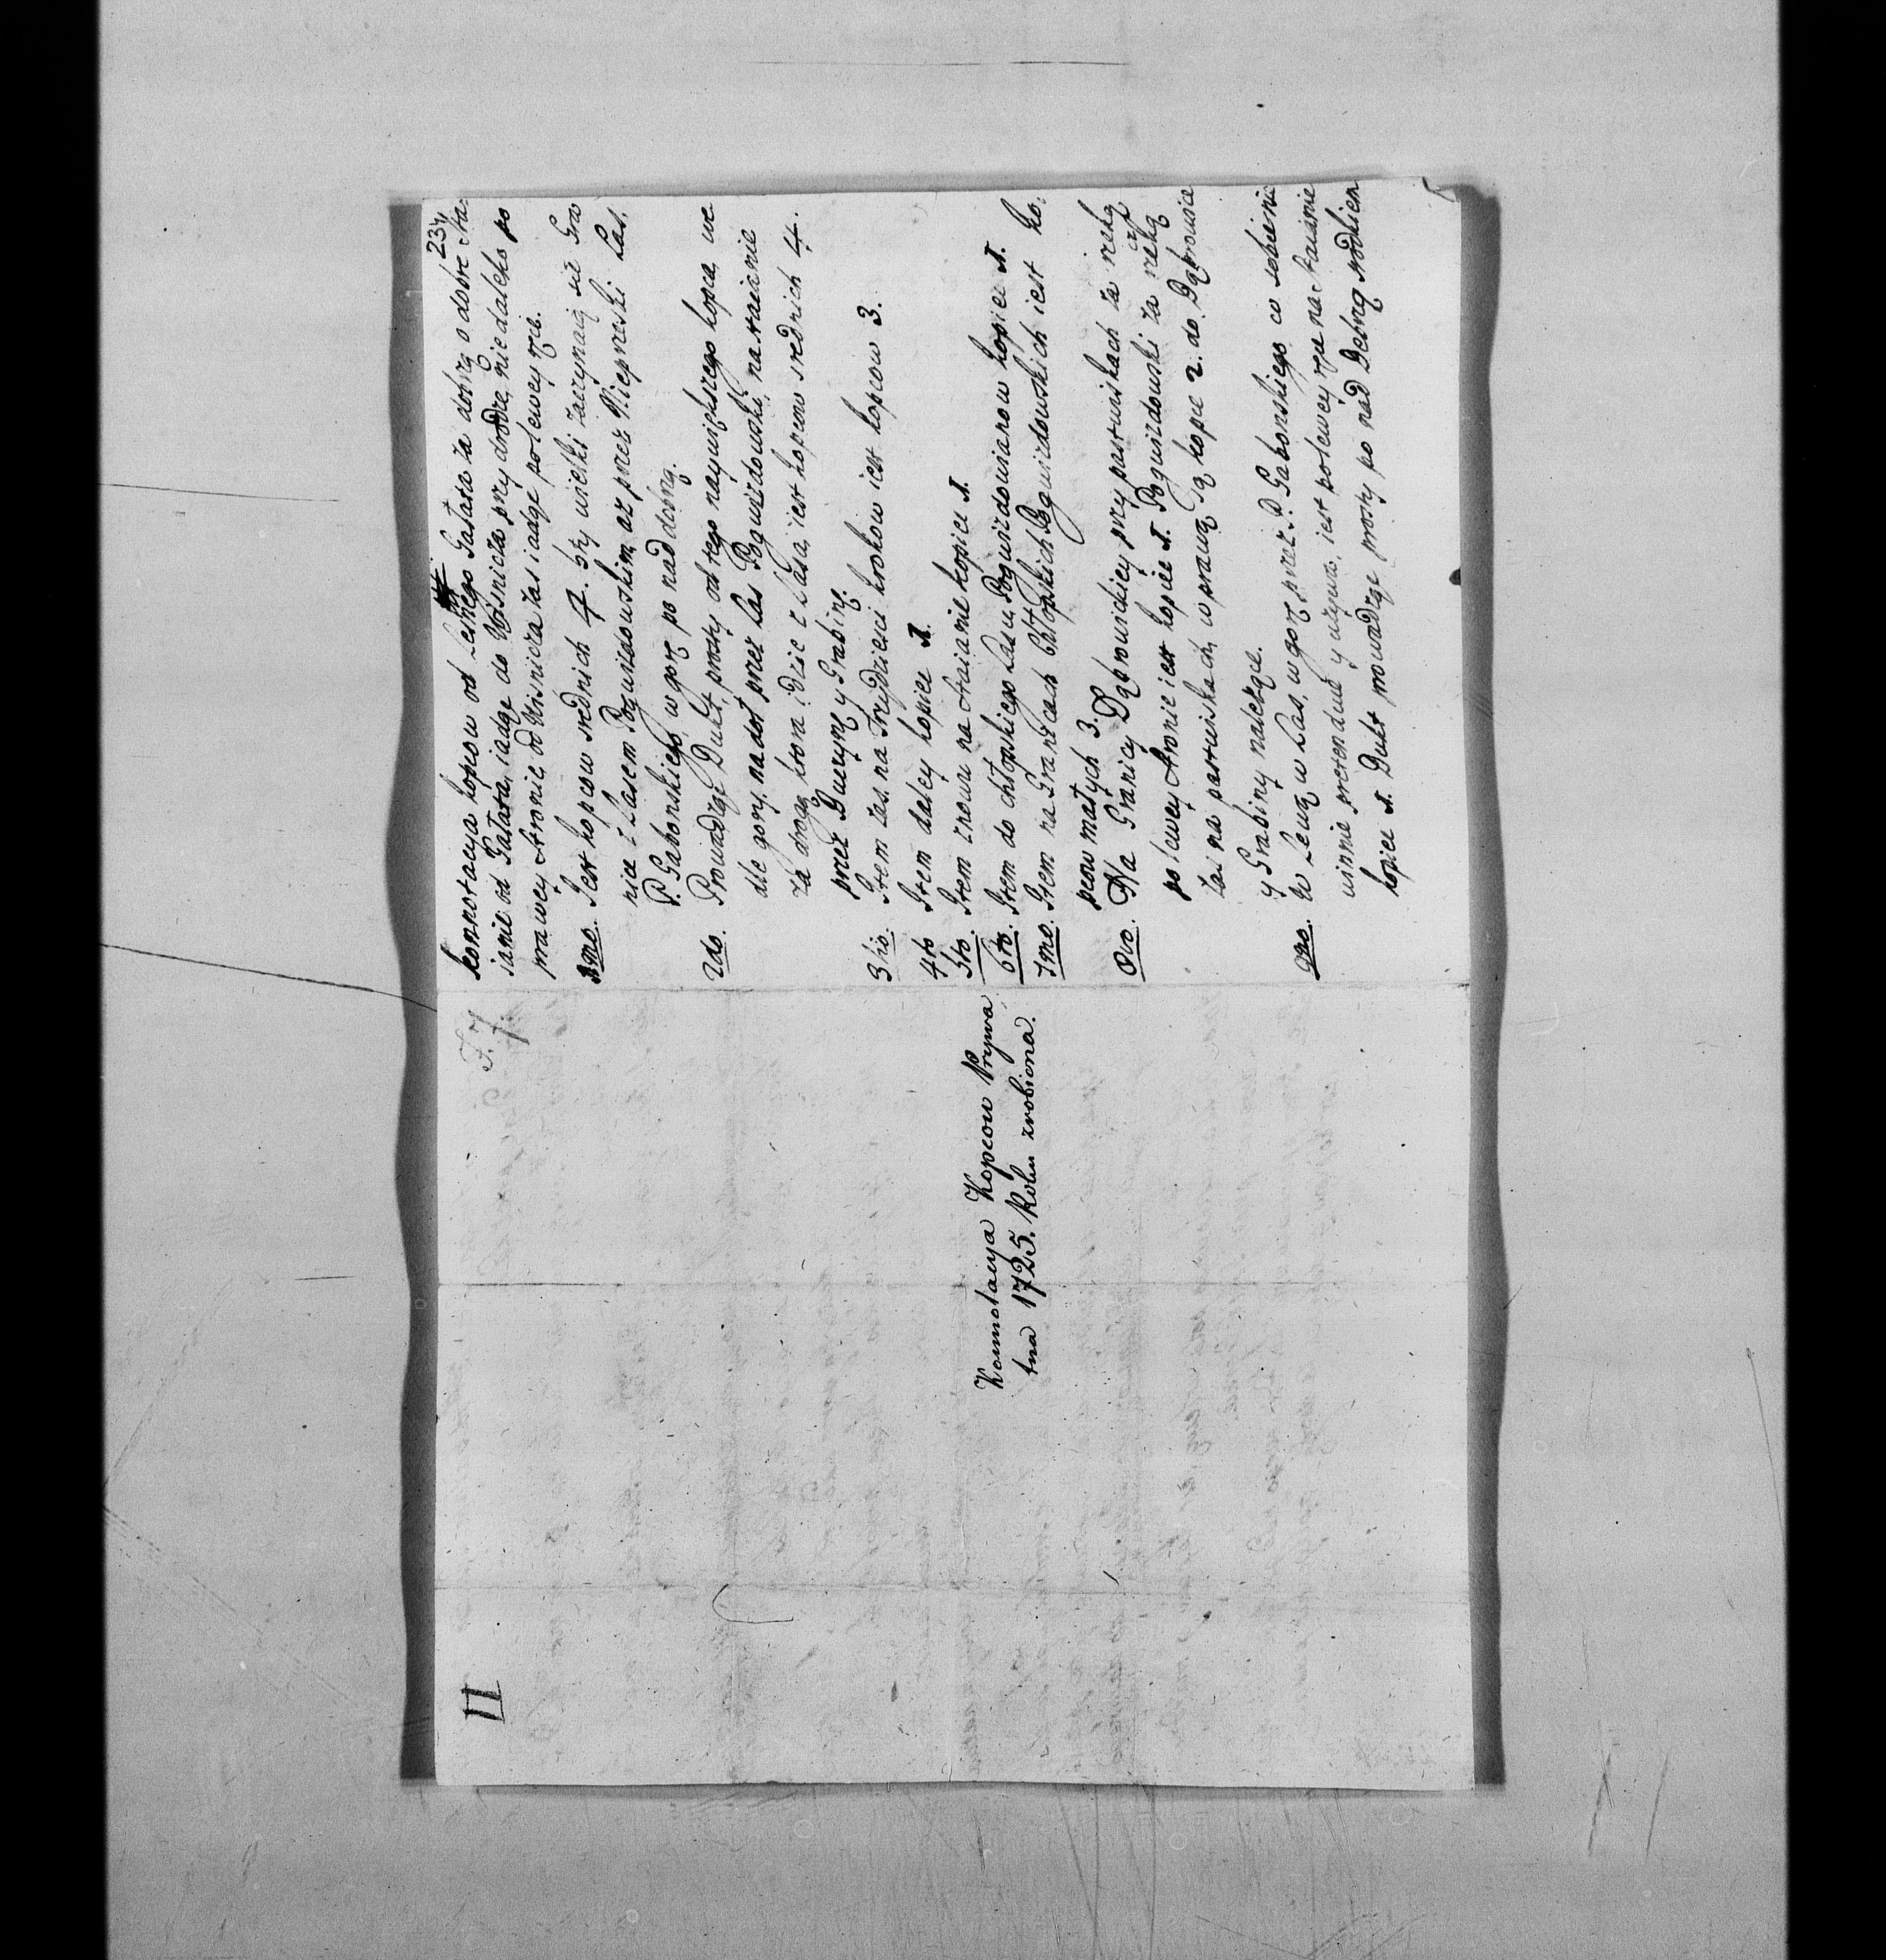 237
Konnotacya kopcow od Lesnego Gatata za dobrą o dobre sta-
janie od Gatata, iadąc do Wisnicza przy drodze, nie daleko po
prawey stronie od Wisnicza zas iadąc po lewey ręce.
1mo. Jest kopcow srednich 4. 5ty wielki zaczynaią się Gra
nice z Lasem Pogwizdowskim, aż przez Nieprzeski Las,
P. Gaborskiego, w gorę po nad debrzą.
2do. Prowadząc Dukt, prosty od tego naywiększego kopca, we
dle gory, na doł przez Las Pogwizdowski, na staianie
za drogą ktora idzie z Lasa, iest kopcow srednich 4.
przez Buczynę y Grabinę.
3tio. Item zas na Trzydziesci krokow iest kopcow 3.
4to Item daley kopiec 1.
5to. Item znowu na staianie kopiec 1.
6to. Item do chłopskiego Lasu, Pogwizdowianow kopiec 1.
7mo. Item na Granicach chłopskich Pogwizdowskich iest ko-
pcow małych 3.
8vo. Na Granicy Dąbrowickiey przy pastwiskach za rzeką
po lewey stronie iest kopiec 1. Pogwizdowski za rzeką
zas na pastwiskach, w prawą są kopce 2. do Dąbrowice
y Grabiny należące.
9no. W Lewą w Las, w gorę przez P. Gaborskiego co sobie nie
winnie pretenduie y używa, iest po lewey ręce na staianie
kopiec 1. Dukt prowadząc prosty po nad Debrzą srodkiem
F. 7.
Konnotacya Kopcow Prywa
tna 1725. Roku zrobiona.
II